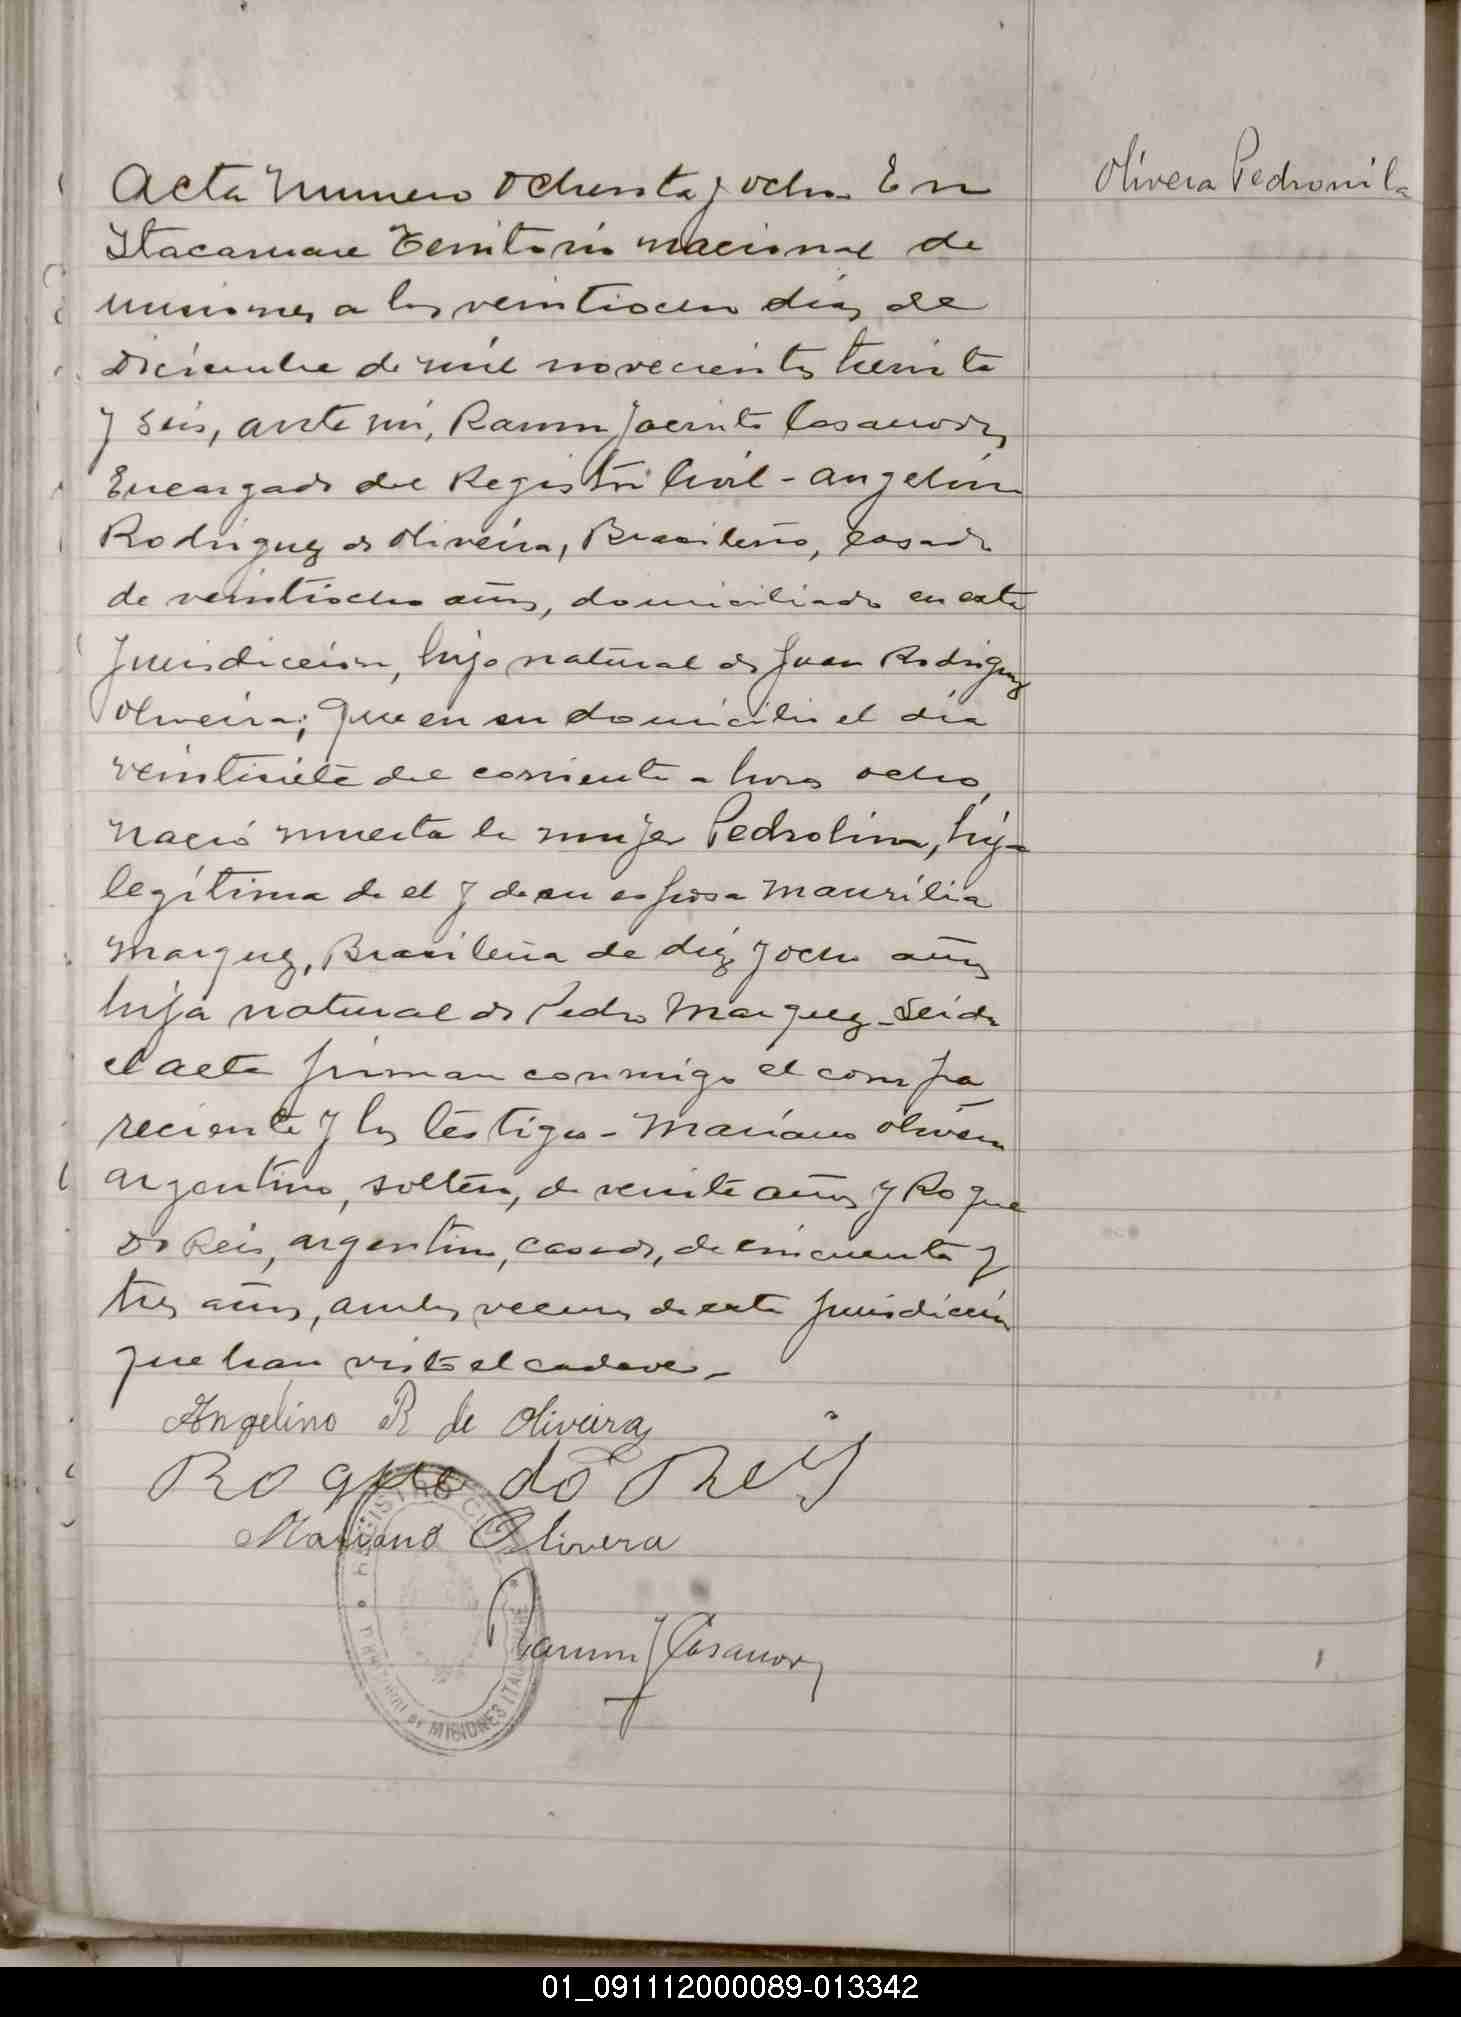 Olivera Pedronila
Acta Numero Ochenta y ocho. En
Itacaruare Territorio nacional de
misiones a los veintiocho dias de
Diciembre de mil novecientos treinta
y seis, ante mi, Ramon Jacinto Casanova,
Encargado del Registro Civil - Angelino
Rodriguez de Oliveira, Brasileño, casado
de veintiocho años, domiciliado en esta
Jurisdiccion, hijo natural de Juan Rodriguez
Oliveira; Que en su domicilio el día
veintisiete del corriente a horas ocho,
Nació muerta la mujer Pedrolina, hija
legítima de el y de su esposa Maurilia
Marquez, Brasileña de diez y ocho años
hija natural de Pedro Marquez - Leida
el acta firman conmigo el compa
reciente y los testigos - Mariano Olivera
argentino, soltero, de veinte años y Roque
Do Reis, argentino, casado, de cincuenta y
tres años, ambos vecinos de esta Jurisdicción
que han visto el cadaver -
Angelino R de Oliveira
Roque do Reis
Mariano Olivera
Ramon J Casanova
REGISTRO CIVIL
TERRITORIO DE MISIONES ITACARUARE
01_091112000089-013342